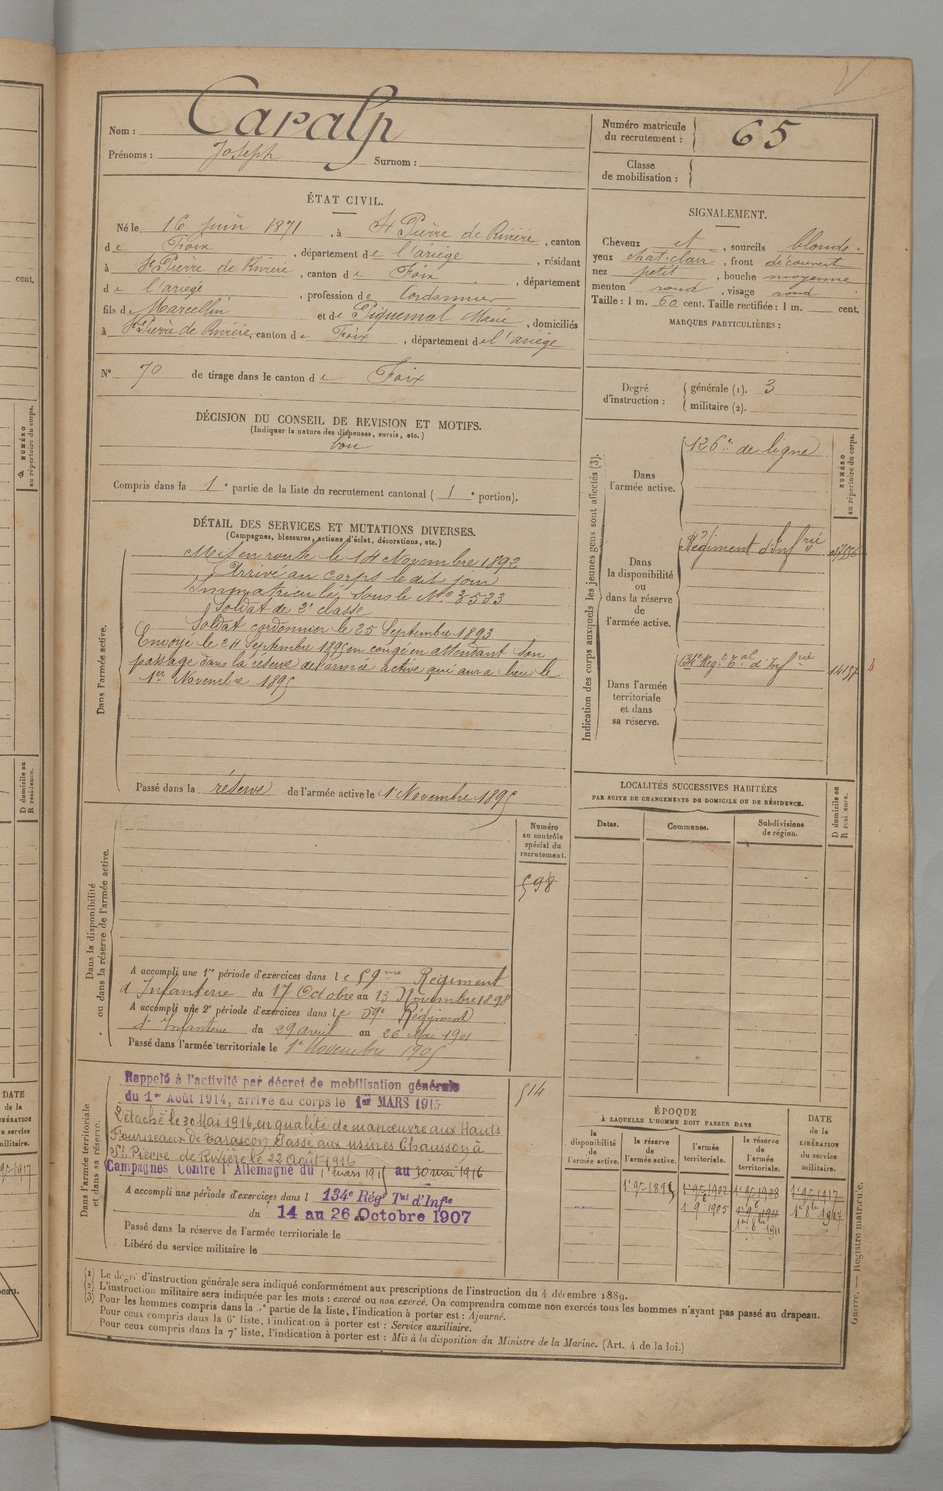 Nom : Caralp
Prénoms : Joseph Surnom :
Numéro matricule du recrutement : 65
Classe de mobilisation :
ÉTAT CIVIL.
Né le 16 juin 1871, à St Pierre de Rivière, canton
de Foix, département de l'ariège, résidant
à St Pierre de Rivière, canton de Foix, département
de l'ariège, profession de Cordonnier
fils de Marcellin et de Piquemal Marie, domiciliés
à St Pierre de Rivière, canton de Foix, département de l'ariège
N° 70 de tirage dans le canton de Foix
SIGNALEMENT.
Cheveux et, sourcils blonds.
yeux chat. clair, front découvert
nez petit, bouche moyenne
menton rond, visage rond
Taille : 1 m. 60 cent. Taille rectifiée : 1 m. cent.
MARQUES PARTICULIÈRES :
Degré d'instruction : générale (1). 3
militaire (2).
DÉCISION DU CONSEIL DE REVISION ET MOTIFS.
(Indiquer la nature des dispenses, sursis, etc.)
bon
Compris dans la 1e partie de la liste du recrutement cantonal (1e portion).
DÉTAIL DES SERVICES ET MUTATIONS DIVERSES.
(Campagnes, blessures, actions d'éclat, décorations, etc.)
Dans l'armée active.
Mis en route le 14 Novembre 1892
Arrivé au corps le dit jour
Immatriculé sous le No 3533
Soldat de 2e classe
Soldat cordonnier le 25 Septembre 1893
Envoyé le 24 Septembre 1895 en congé en attendant son
passage dans la réserve de l'armée active qui aura lieu le
1er Novembre 1895
Passé dans la réserve de l'armée active le 1er Novembre 1895
Indication des corps auxquels les jeunes gens sont affectés (3).
NUMÉRO au répertoire du corps.
Dans l'armée active.
126e de ligne
Dans la disponibilité ou dans la réserve de l'armée active.
Régiment d'Infrie
Dans l'armée territoriale et dans sa réserve.
134e Reg. Tal d'Infrie
LOCALITÉS SUCCESSIVES HABITÉES
PAR SUITE DE CHANGEMENTS DE DOMICILE OU DE RÉSIDENCE.
Dates. Communes. Subdivisions de région. D domicile ou R résidence.
Dans la disponibilité ou dans la réserve de l'armée active.
Numéro au contrôle spécial du recrutement.
598
A accompli une 1re période d'exercices dans le 59me Régiment
d'Infanterie du 17 Octobre au 13 Novembre 1898
A accompli une 2e période d'exercices dans le 59e Régiment
d'Infanterie du 29 avril au 26 Mai 1901
Passé dans l'armée territoriale le 1er Novembre 1905
Dans l'armée territoriale et dans sa réserve.
514
Rappelé à l'activité par décret de mobilisation générale
du 1er Août 1914, arrivé au corps le 1er MARS 1915
Détaché le 30 Mai 1916, en qualité de manœuvre aux Hauts
Fourneaux de Tarascon. Passé aux usines Chausson à
St. Pierre de Rivière le 22 Août 1916
Campagnes Contre l'Allemagne du 1er mars 1915 au 30 mai 1916
A accompli une période d'exercices dans l 134e Rég Tal d'Infie
du 14 au 26 Octobre 1907
Passé dans la réserve de l'armée territoriale le
Libéré du service militaire le
ÉPOQUE
À LAQUELLE L'HOMME DOIT PASSER DANS
la disponibilité de l'armée active. la réserve de l'armée active. l'armée territoriale. la réserve de l'armée territoriale.
DATE de la LIBÉRATION du service militaire.
1er 9bre 1895 1er 9bre 1902 1er 9bre 1908 1er 9bre 1917
1er 9bre 1905 1er 9bre 1911 1er 8bre 1917
1er 8bre 1911
(1) Le degré d'instruction générale sera indiqué conformément aux prescriptions de l'instruction du 4 décembre 1889.
(2) L'instruction militaire sera indiquée par les mots : exercé ou non exercé. On comprendra comme non exercés tous les hommes n'ayant pas passé au drapeau.
(3) Pour les hommes compris dans la 5e partie de la liste, l'indication à porter est : Ajourné.
Pour ceux compris dans la 6e liste, l'indication à porter est : Service auxiliaire.
Pour ceux compris dans la 7e liste, l'indication à porter est : Mis à la disposition du Ministre de la Marine. (Art. 4 de la loi.)
Guerre. — Registre matricule.